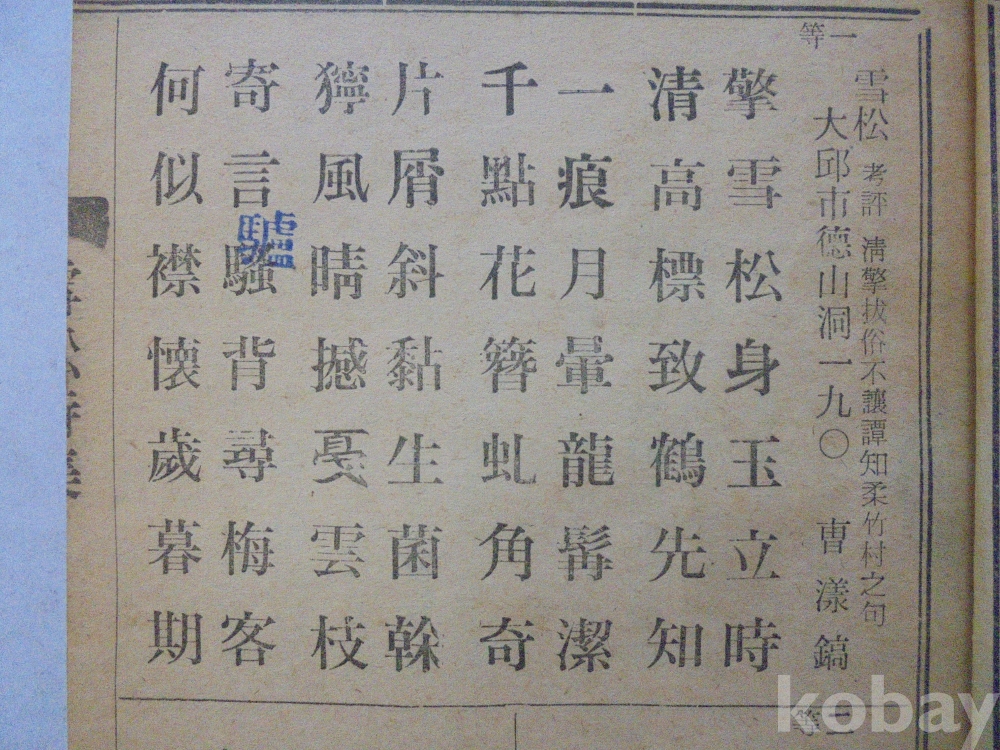 一等
雪松 考評 淸擎拔俗不讓譚知柔竹村之句
大邱市德山洞一九〇 曺漾鎬
擎雪松身玉立時
清高標致鶴先知
一痕月暈龍髯潔
千點花簪虬角奇
片屑斜黏生菌榦
獰風晴撼戛雲枝
寄言騷背尋梅客
驢
何似襟懐歲暮期
二等
kobay